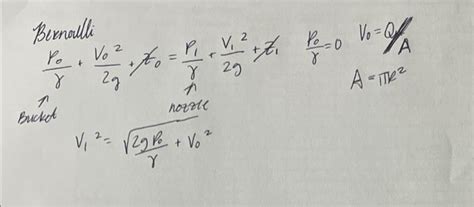 Bernoulli
P₀/γ + V₀²/2g + z₀ = P₁/γ + V₁²/2g + z₁   P₀/γ = 0   V₀ = Q/A
↑ Bucket   ↑ nozzle   A = πR²
V₁² = √(2gP₀/γ + V₀²)